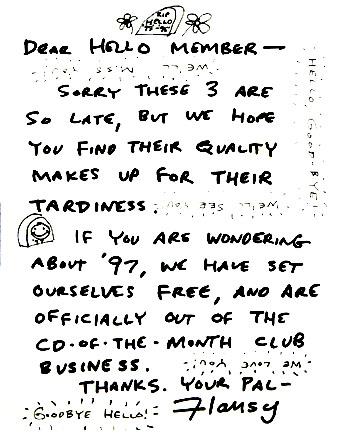 RIP
HELLO
'95-'96
DEAR HELLO MEMBER —
WE'LL MISS YOU!
SORRY THESE 3 ARE
SO LATE, BUT WE HOPE
YOU FIND THEIR QUALITY
MAKES UP FOR THEIR
TARDINESS.
WE'LL SEE YOU
HELLO, GOOD-BYE
IF YOU ARE WONDERING
ABOUT '97, WE HAVE SET
OURSELVES FREE, AND ARE
OFFICIALLY OUT OF THE
CD-OF-THE-MONTH CLUB
BUSINESS.
WE LOVE YOU!
THANKS. YOUR PAL—
GOODBYE HELLO!